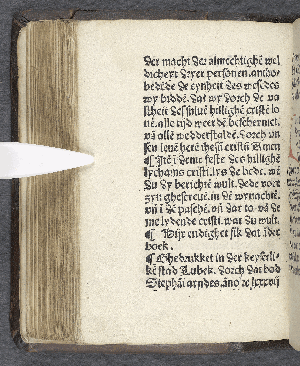 der macht der almechtighē wel
dicheyt dryer personen. antho-
bedēde de eynheit des wesēdes
wy biddē. dat wy dorch de va
stheit dessulvē hillighē cristē lo
uē. alle tijd werdē beschermet.
vā allē wedderstaldē. dorch vn
sen leuē herē ihesū cristū Amen
¶ Itē i deme feste des hillighē
lychams cristi. lys de bede. wē
du dy berichtē wult. dede vore
zyn ghescreuē. in dē wynachtē.
vñ i dē paschē. vñ dar to. vā dē
me lydende cristi. wat du wult.
¶ Hijr endighet sik dat ōder
boek.
¶ Ghedrukket in der keyserli-
kē stad Lubek. dorch dat bod
Stephāi arndes. āno